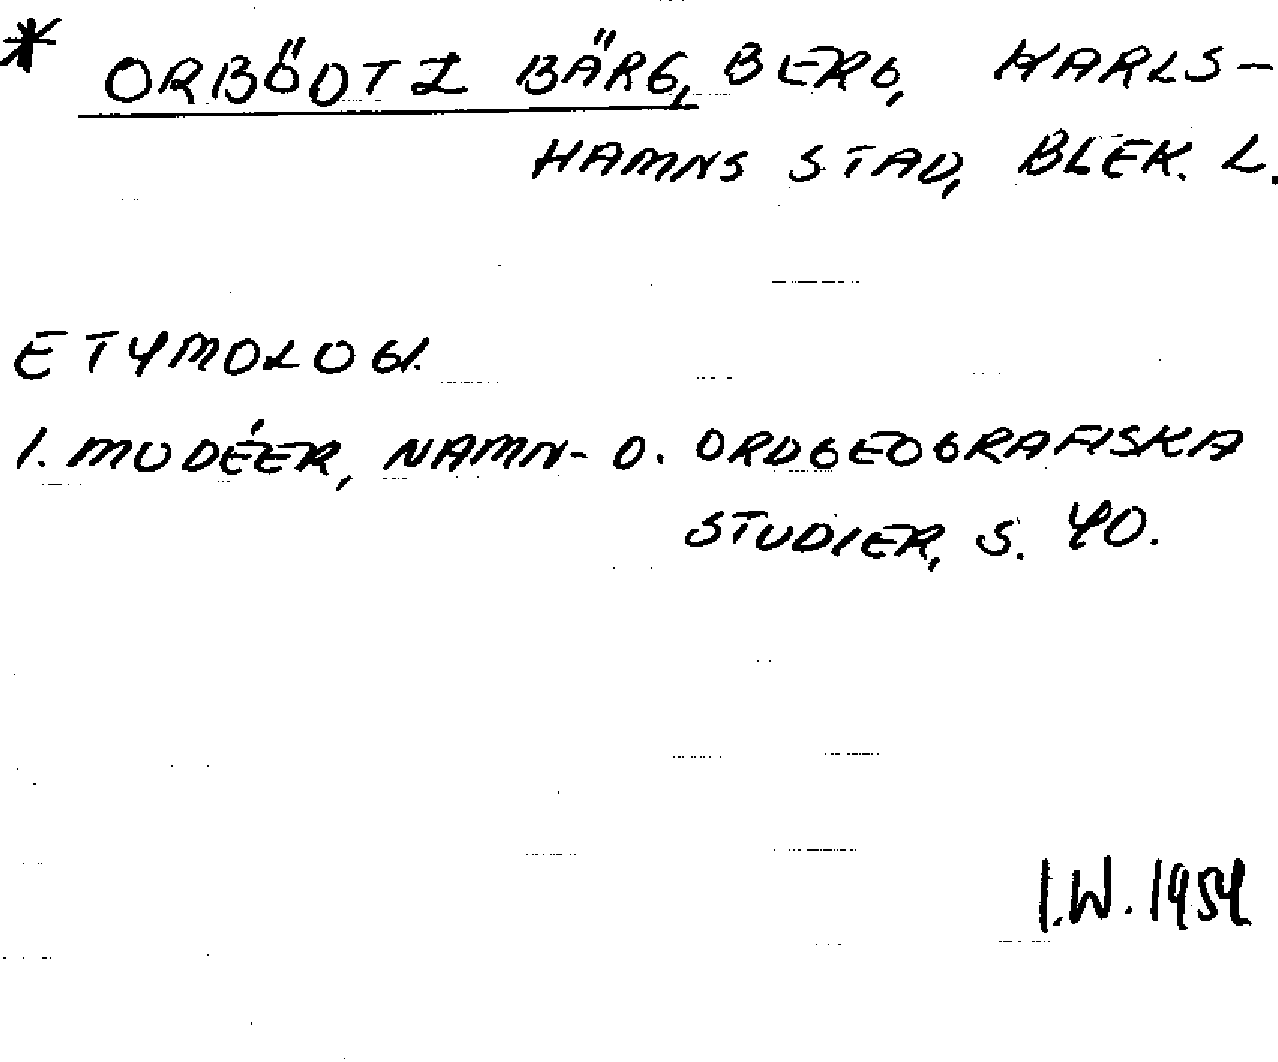 * ORBÖDTZ BÄRG, BERG, KARLS-
HAMNS STAD, BLEK. L.
ETYMOLOGI.
I. MODÉER, NAMN- O. ORDGEOGRAFISKA
STUDIER, S. 40.
I.W. 1954